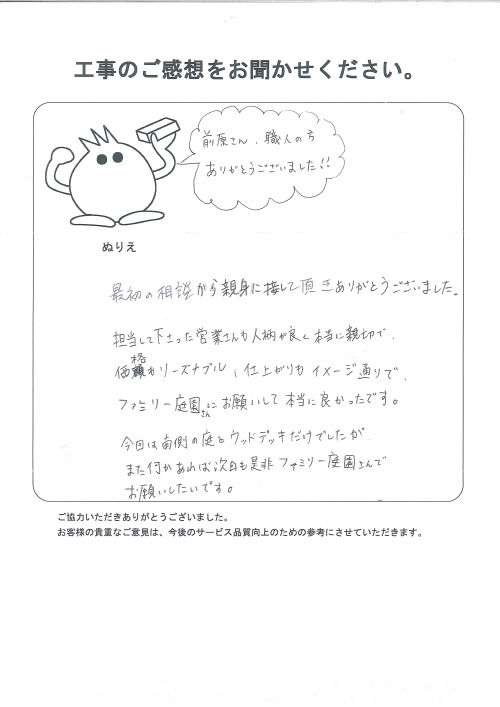 工事のご感想をお聞かせください。
前原さん、職人の方
ありがとうございました!!
ぬりえ
最初の相談から親身に接して頂きありがとうございました。
担当して下さった営業さんも人柄が良く本当に親切で、
価格もリーズナブル、仕上がりもイメージ通りで、
ファミリー庭園さんにお願いして本当に良かったです。
今回は南側の庭とウッドデッキだけでしたが
また何かあれば次回も是非ファミリー庭園さんで
お願いしたいです。
ご協力いただきありがとうございました。
お客様の貴重なご意見は、今後のサービス品質向上のための参考にさせていただきます。